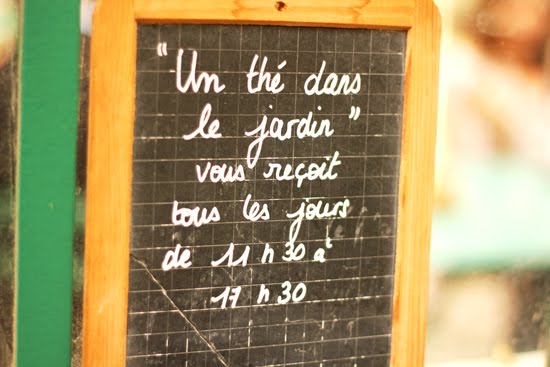 "Un thé dans
le jardin"
vous reçoit
tous les jours
de 11 h 30 à
17 h 30